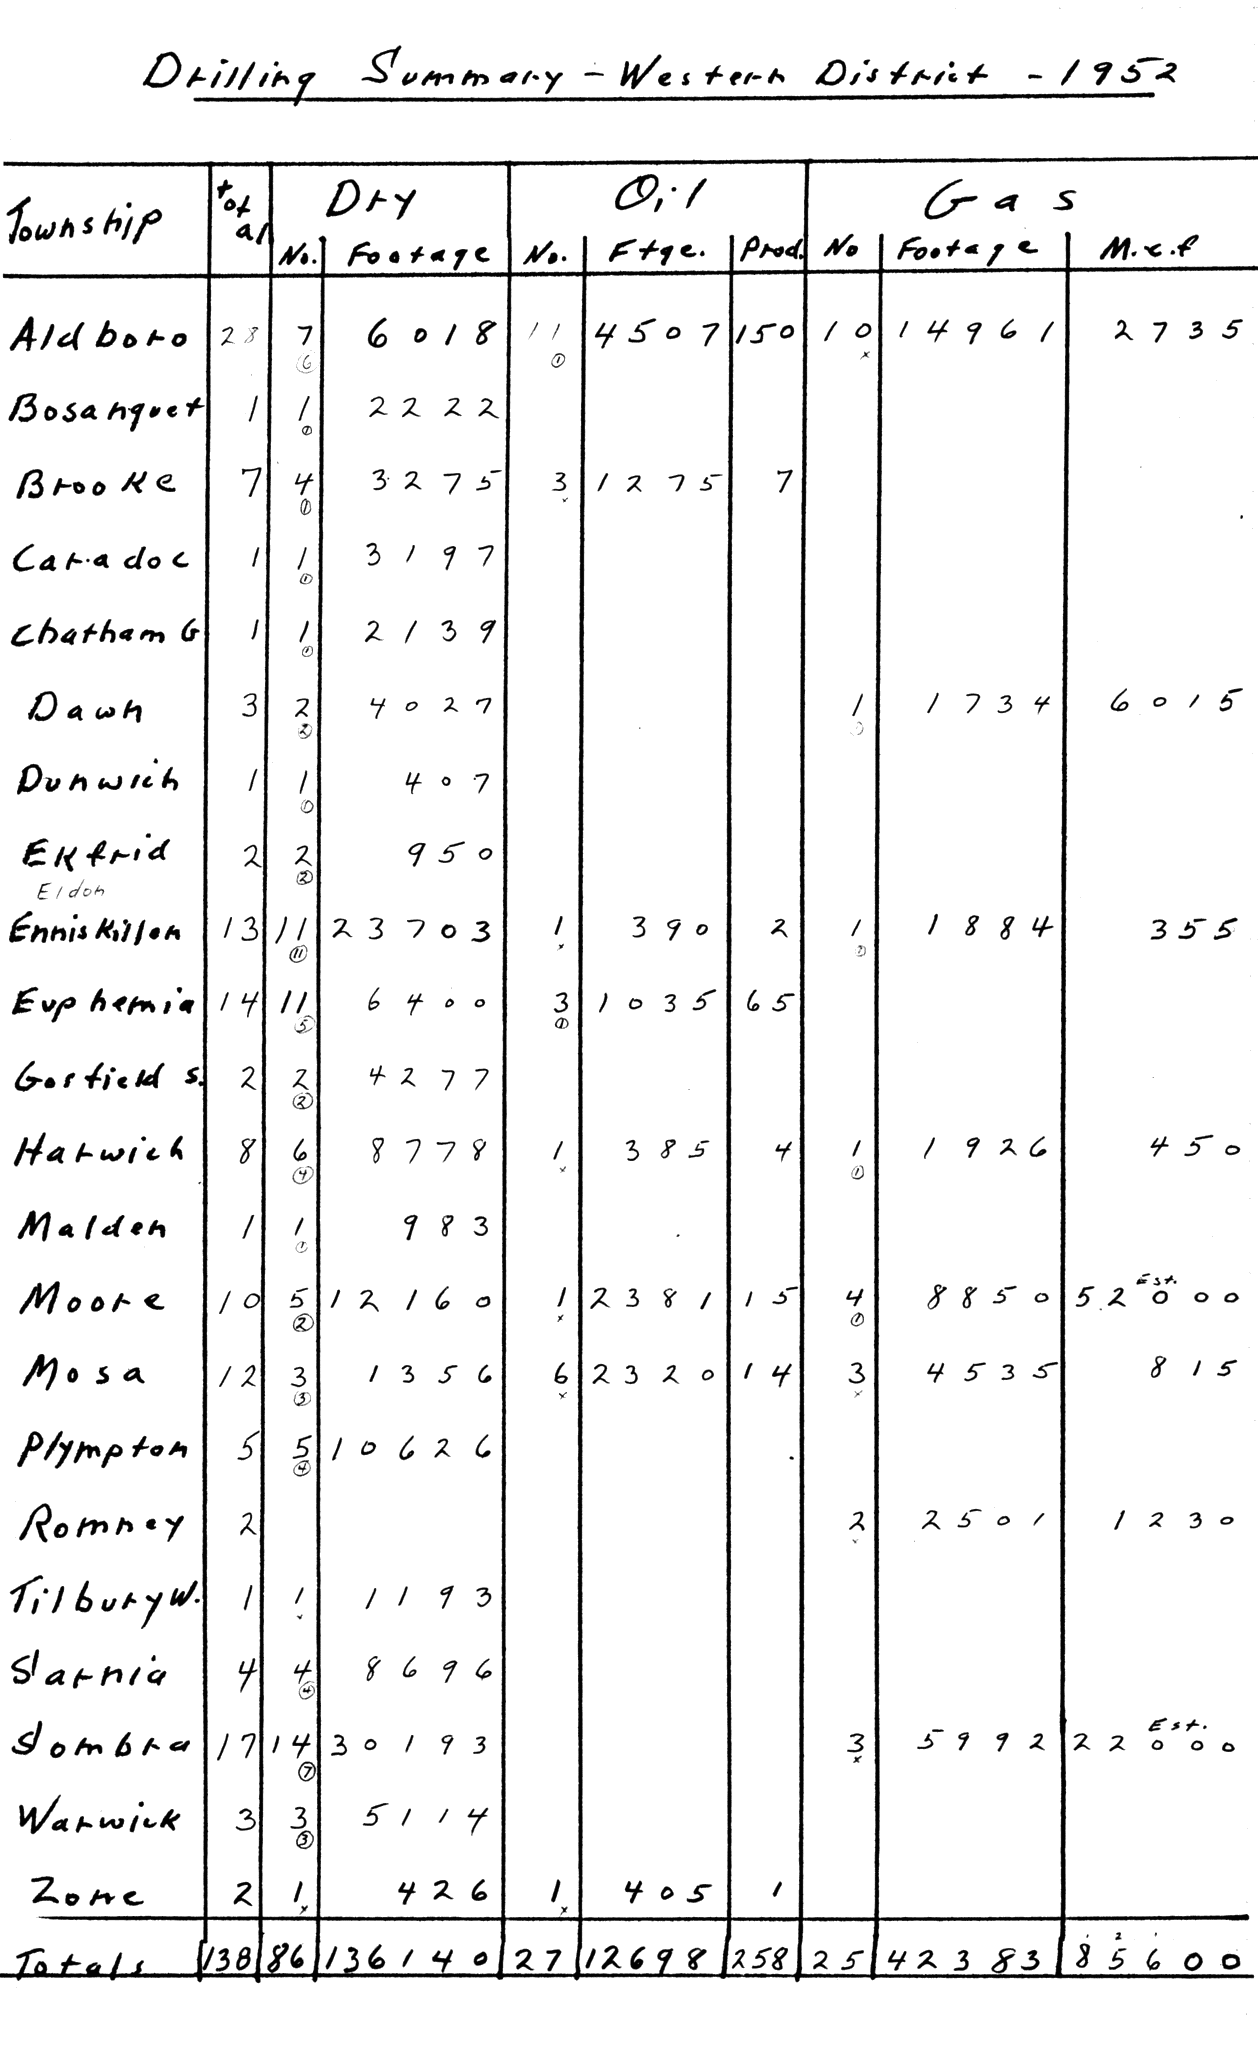 Drilling Summary - Western District - 1952
Township total Dry Oil Gas
No. Footage No. Ftge. Prod. No Footage M.c.f
Aldboro 28 7 6018 11 4507 150 10 14961 2735
6 1 x
Bosanquet 1 1 2222
1
Brooke 7 4 3275 3 1275 7
1 x
Caradoc 1 1 3197
1
Chatham G 1 1 2139
1
Dawn 3 2 4027 1 1734 6015
2 1
Dunwich 1 1 407
1
Ekfrid 2 2 950
2
Eldon
Enniskillen 13 11 23703 1 390 2 1 1884 355
11 x
Euphemia 14 11 6400 3 1035 65
5 1
Gosfield S. 2 2 4277
2
Harwich 8 6 8778 1 385 4 1 1926 450
4 x 1
Malden 1 1 983
1
Est.
Moore 10 5 12160 1 2381 15 4 8850 52000
2 x 1
Mosa 12 3 1356 6 2320 14 3 4535 815
3 x x
Plympton 5 5 10626
4
Romney 2 2 2501 1230
x
Tilbury W. 1 1 1193
x
Sarnia 4 4 8696
4
Est.
Sombra 17 14 30193 3 5992 22000
7 x
Warwick 3 3 5114
3
Zone 2 1 426 1 405 1
x x
Totals 138 86 136140 27 12698 258 25 42383 85600